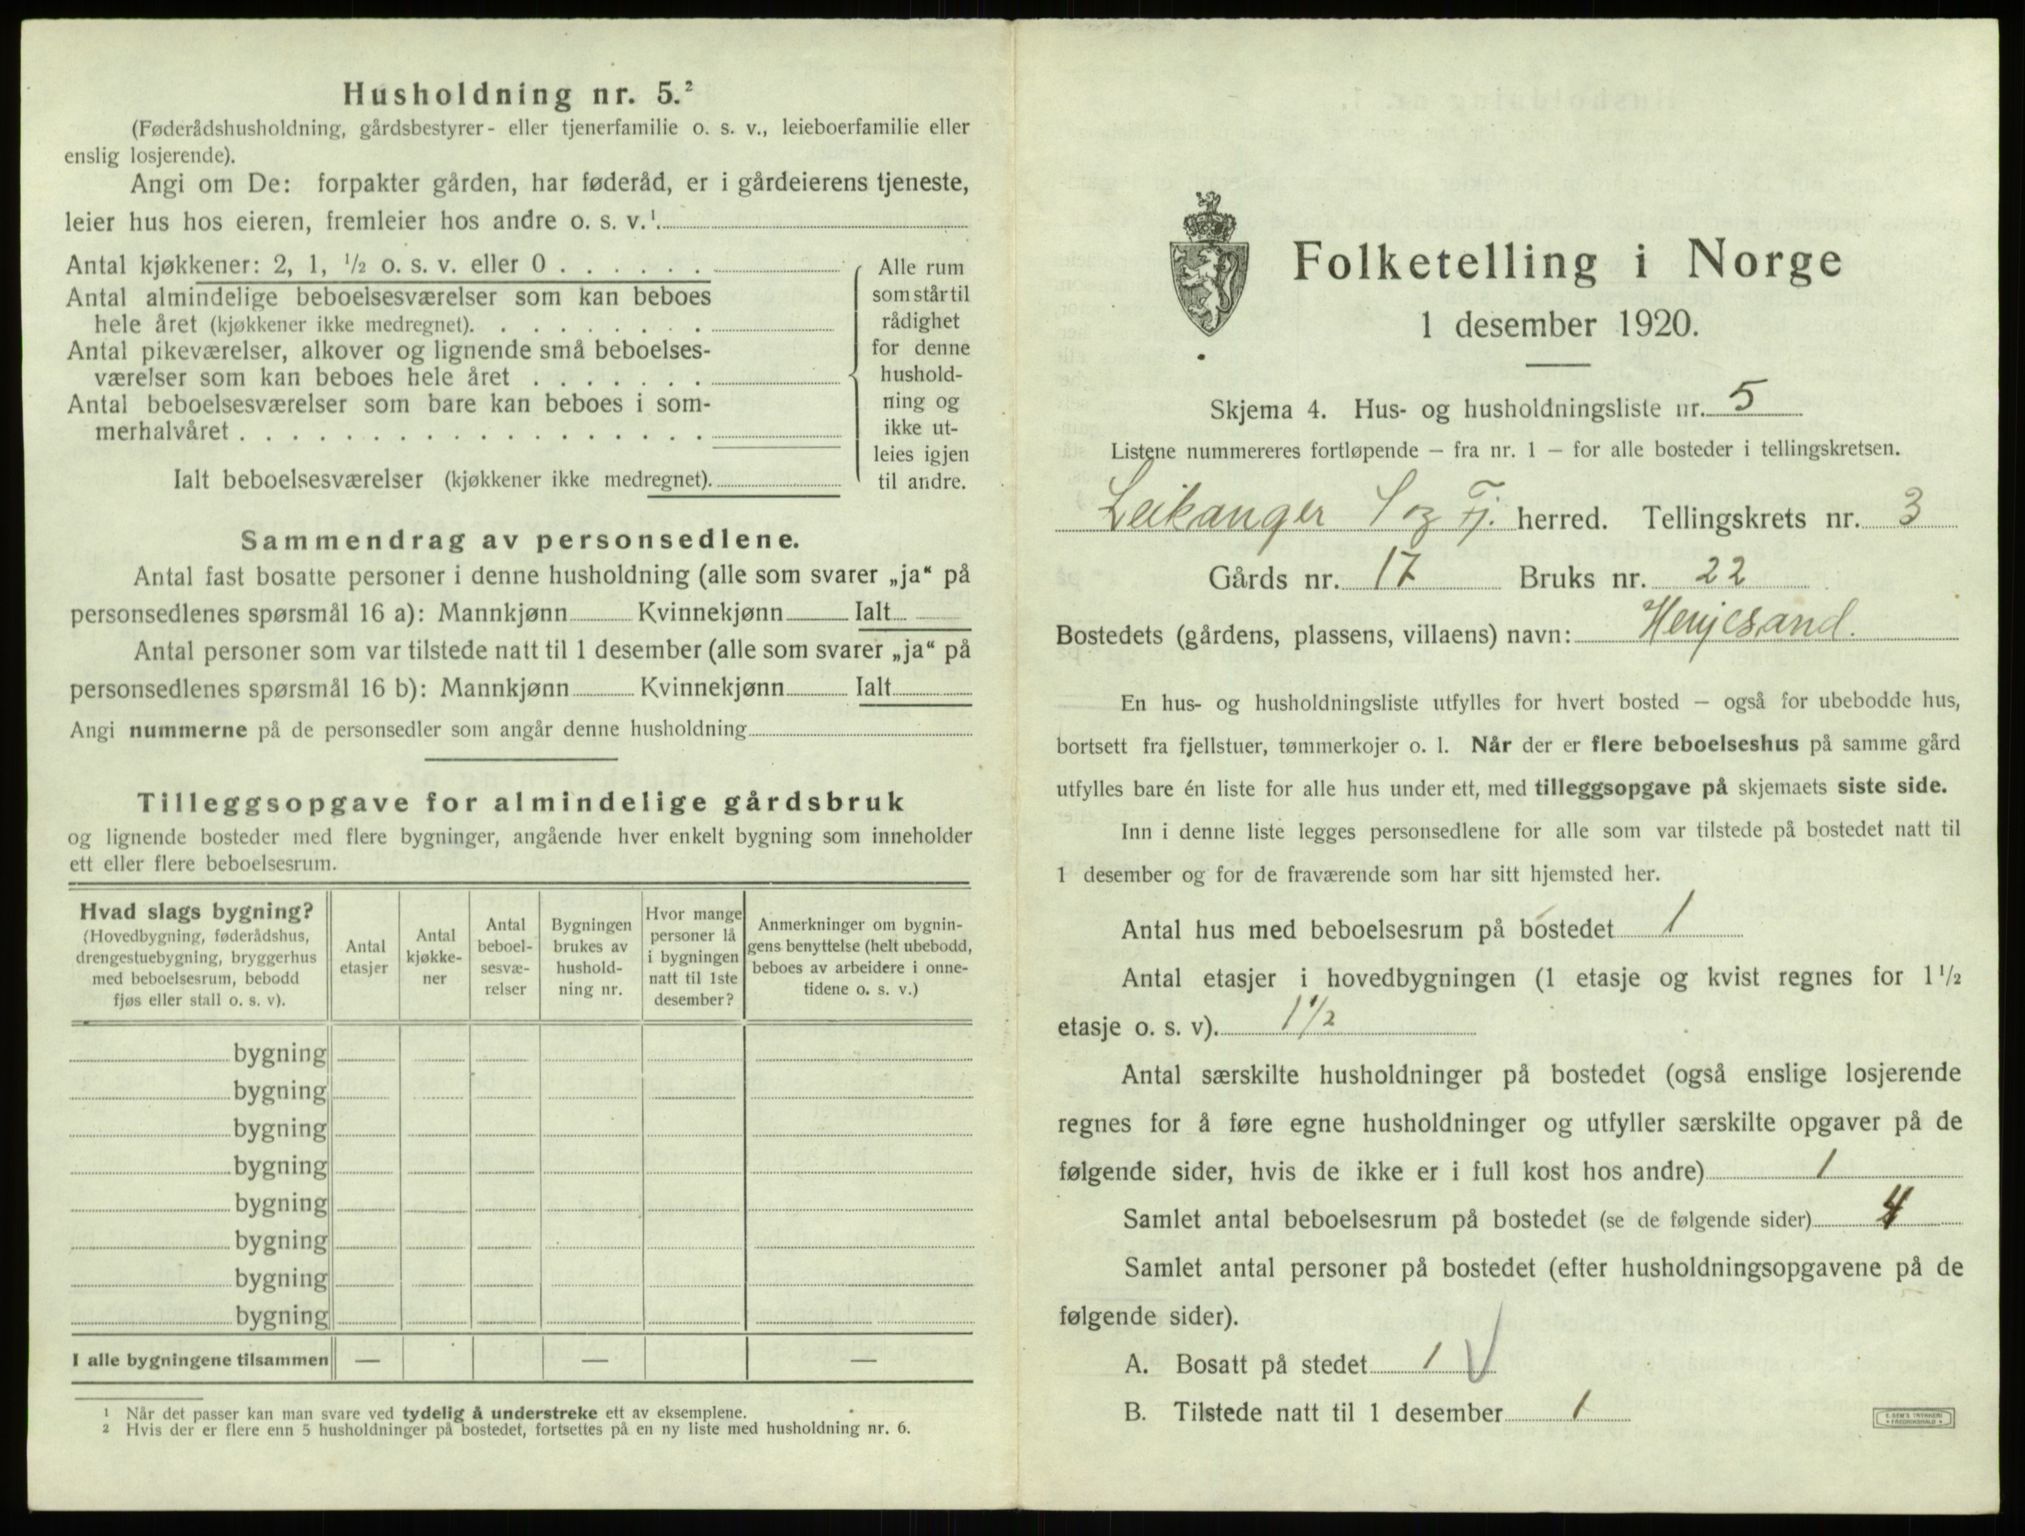 Husholdning nr. 5.²
(Føderådshusholdning, gårdsbestyrer- eller tjenerfamilie o. s. v., leieboerfamilie eller
enslig losjerende).
Angi om De: forpakter gården, har føderåd, er i gårdeierens tjeneste,
leier hus hos eieren, fremleier hos andre o. s. v.¹
Antal kjøkkener: 2, 1, ½ o. s. v. eller 0
Antal almindelige beboelsesværelser som kan beboes
hele året (kjøkkener ikke medregnet).
Antal pikeværelser, alkover og lignende små beboelses-
værelser som kan beboes hele året
Antal beboelsesværelser som bare kan beboes i som-
merhalvåret
Ialt beboelsesværelser (kjøkkener ikke medregnet).
Alle rum
som står til
rådighet
for denne
hushold-
ning og
ikke ut-
leies igjen
til andre.
Sammendrag av personsedlene.
Antal fast bosatte personer i denne husholdning (alle som svarer „ja“ på
personsedlenes spørsmål 16 a): Mannkjønn Kvinnekjønn Ialt
Antal personer som var tilstede natt til 1 desember (alle som svarer „ja“ på
personsedlenes spørsmål 16 b): Mannkjønn Kvinnekjønn Ialt
Angi nummerne på de personsedler som angår denne husholdning
Tilleggsopgave for almindelige gårdsbruk
og lignende bosteder med flere bygninger, angående hver enkelt bygning som inneholder
ett eller flere beboelsesrum.
Hvad slags bygning?
(Hovedbygning, føderådshus,
drengestuebygning, bryggerhus
med beboelsesrum, bebodd
fjøs eller stall o. s. v).
Antal
etasjer
Antal
kjøkke-
ner
Antal
beboel-
sesvæ-
relser
Bygningen
brukes av
hushold-
ning nr.
Hvor mange
personer lå
i bygningen
natt til 1ste
desember?
Anmerkninger om bygnin-
gens benyttelse (helt ubebodd,
beboes av arbeidere i onne-
tidene o. s. v.)
bygning
bygning
bygning
bygning
bygning
bygning
bygning
bygning
I alle bygningene tilsammen — — —
¹ Når det passer kan man svare ved tydelig å understreke ett av eksemplene.
² Hvis der er flere enn 5 husholdninger på bostedet, fortsettes på en ny liste med husholdning nr. 6.
Folketelling i Norge
1 desember 1920.
Skjema 4. Hus- og husholdningsliste nr. 5
Listene nummereres fortløpende — fra nr. 1 — for alle bosteder i tellingskretsen.
Leikanger S og Fj. herred. Tellingskrets nr. 3
Gårds nr. 17 Bruks nr. 22
Bostedets (gårdens, plassens, villaens) navn: Henjesand.
En hus- og husholdningsliste utfylles for hvert bosted — også for ubebodde hus,
bortsett fra fjellstuer, tømmerkojer o. l. Når der er flere beboelseshus på samme gård
utfylles bare én liste for alle hus under ett, med tilleggsopgave på skjemaets siste side.
Inn i denne liste legges personsedlene for alle som var tilstede på bostedet natt til
1 desember og for de fraværende som har sitt hjemsted her.
Antal hus med beboelsesrum på bostedet 1
Antal etasjer i hovedbygningen (1 etasje og kvist regnes for 1 ½
etasje o. s. v). 1½
Antal særskilte husholdninger på bostedet (også enslige losjerende
regnes for å føre egne husholdninger og utfyller særskilte opgaver på de
følgende sider, hvis de ikke er i full kost hos andre) 1
Samlet antal beboelsesrum på bostedet (se de følgende sider) 4
Samlet antal personer på bostedet (efter husholdningsopgavene på de
følgende sider).
A. Bosatt på stedet 1 V
B. Tilstede natt til 1 desember 1
E. SEM'S TRYKKERI
FREDRIKSHALD